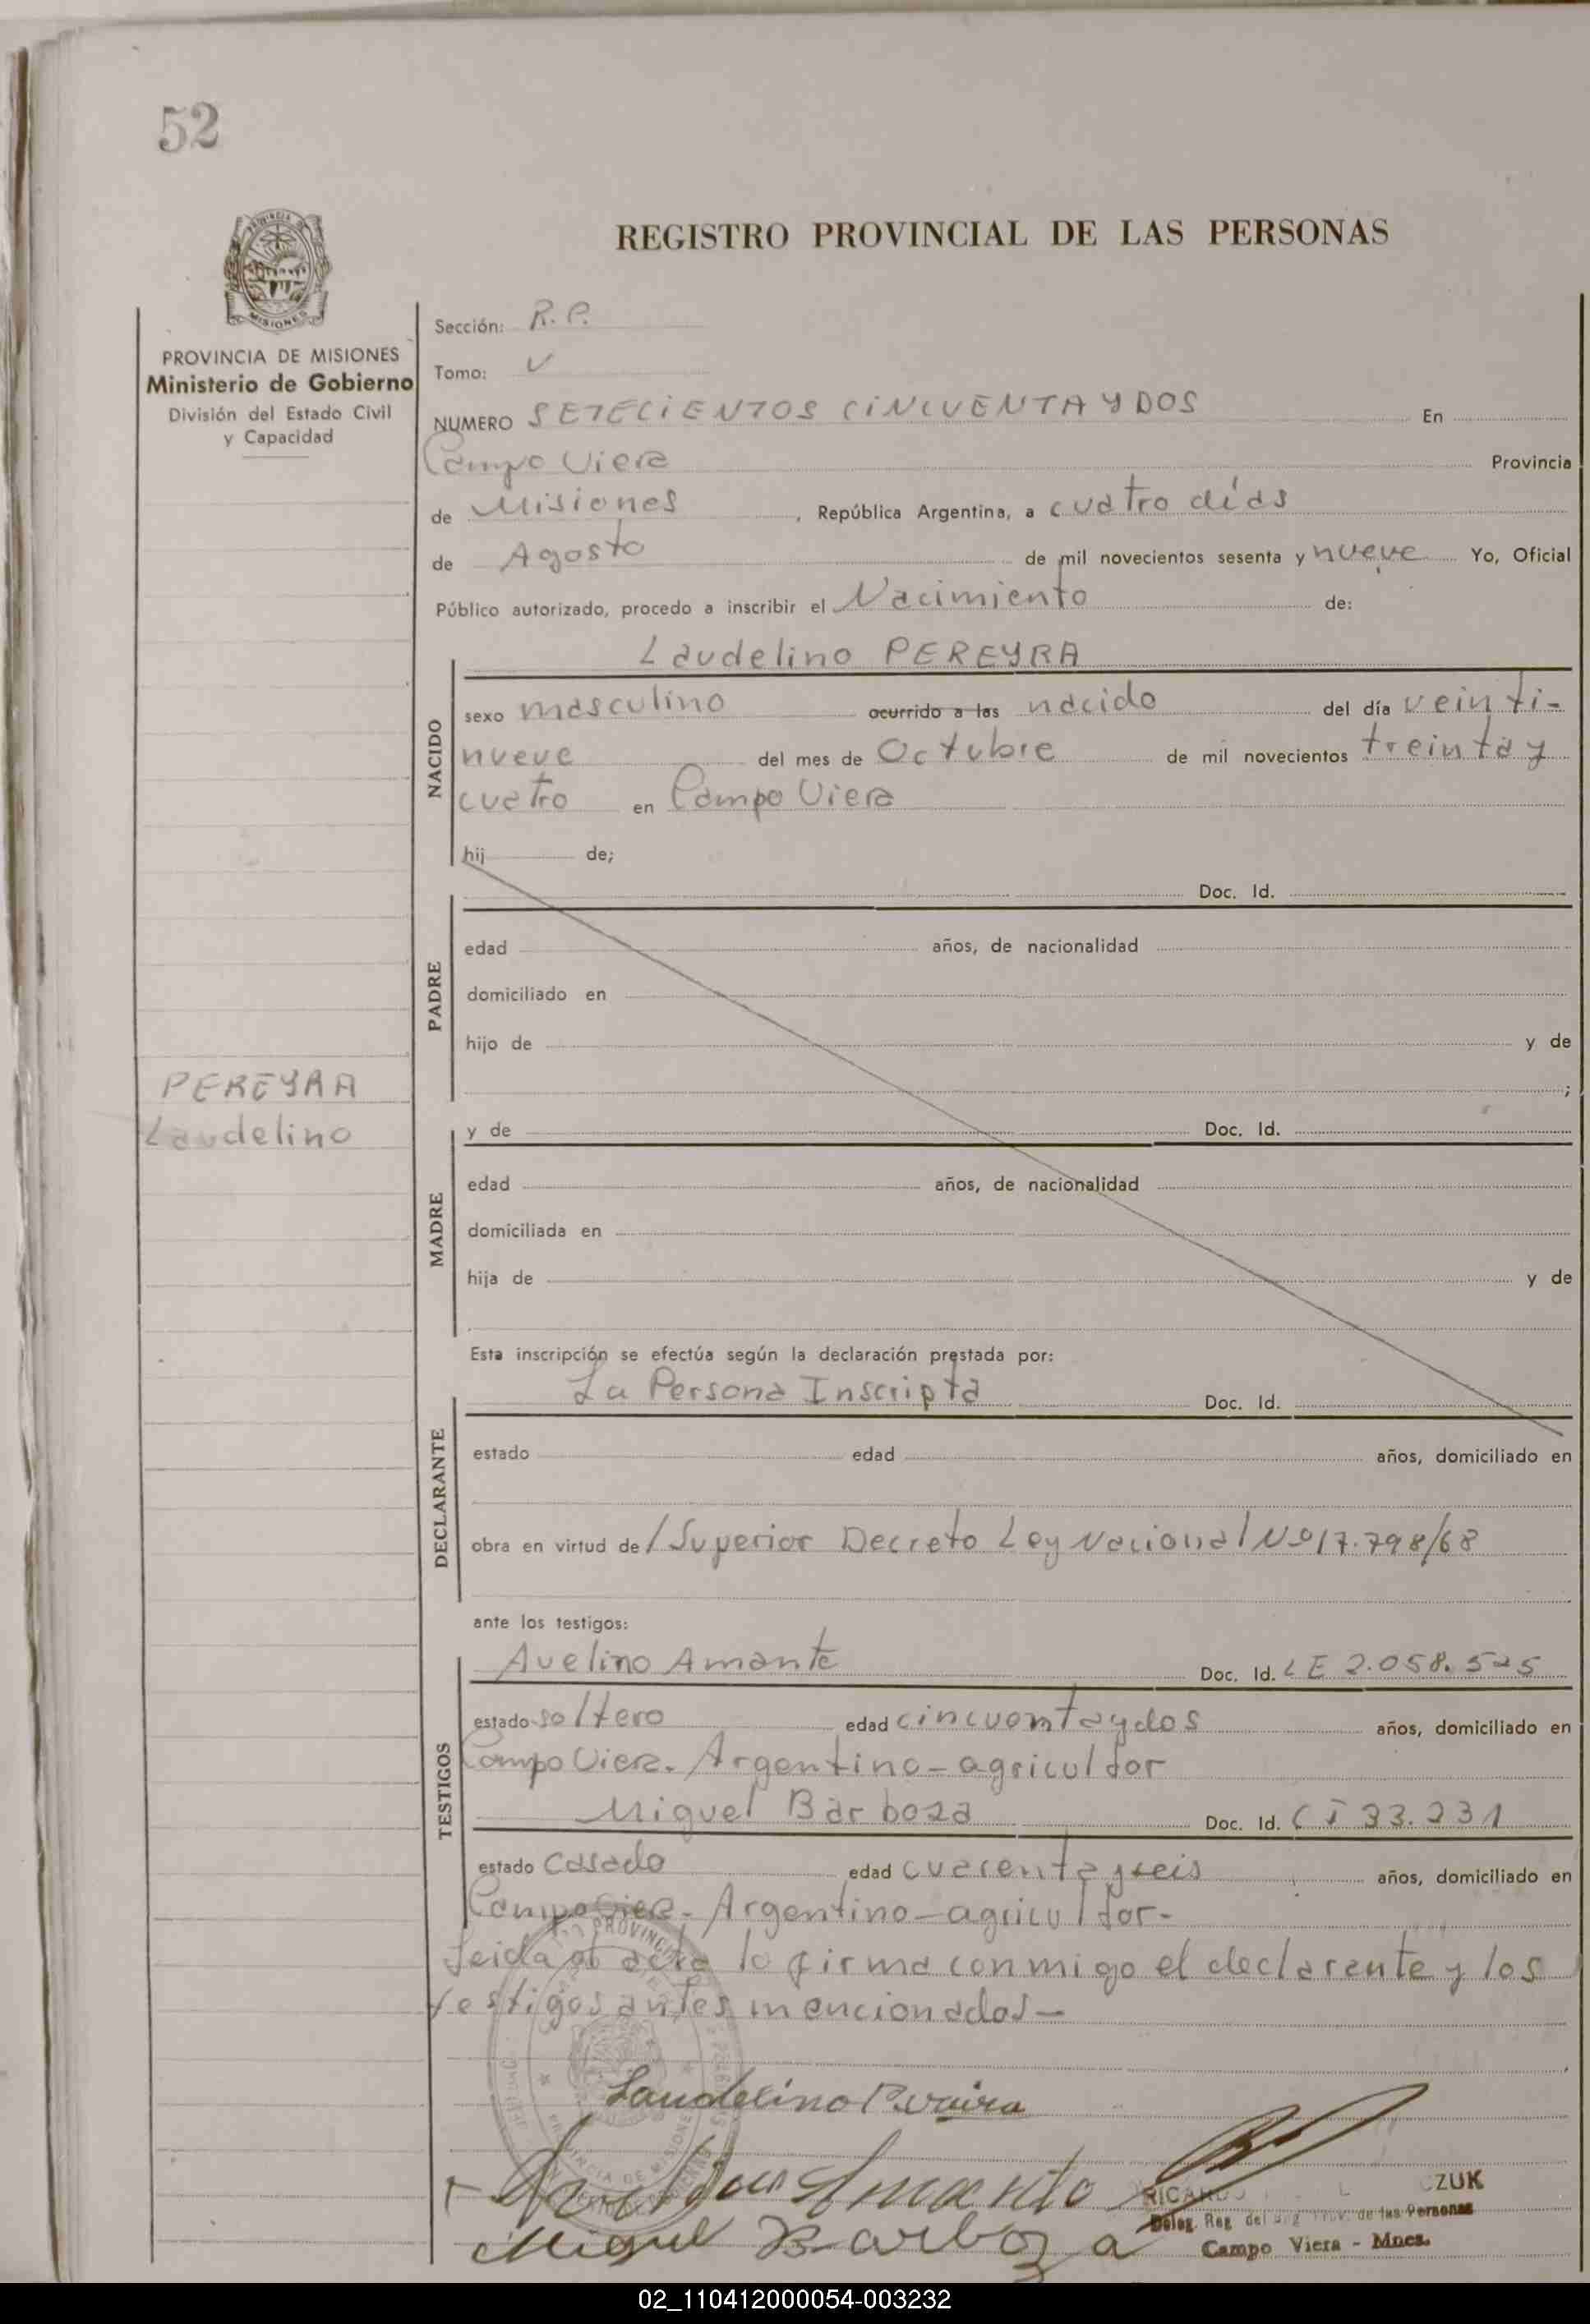 52
REGISTRO PROVINCIAL DE LAS PERSONAS
PROVINCIA DE MISIONES
Ministerio de Gobierno
División del Estado Civil
y Capacidad
Sección: R. P.
Tomo: V
NUMERO SETECIENTOS CINCUENTA Y DOS En
Campo Viera Provincia
de Misiones, República Argentina, a cuatro días
de Agosto de mil novecientos sesenta y nueve Yo, Oficial
Público autorizado, procedo a inscribir el Nacimiento de:
Laudelino PEREYRA
NACIDO
sexo masculino ocurrido a las nacido del día veinti-
nueve del mes de Octubre de mil novecientos treinta y
cuatro en Campo Viera
hij de;
Doc. Id.
PADRE
edad años, de nacionalidad
domiciliado en
hijo de y de
;
PEREYRA
Laudelino
y de Doc. Id.
MADRE
edad años, de nacionalidad
domiciliada en
hija de y de
Esta inscripción se efectúa según la declaración prestada por:
La Persona Inscripta Doc. Id.
DECLARANTE
estado edad años, domiciliado en
obra en virtud de / Superior Decreto Ley Nacional Nº 17.798/68
ante los testigos:
Avelino Amante Doc. Id. LE 2.058.525
TESTIGOS
estado soltero edad cincuenta y dos años, domiciliado en
Campo Viera. Argentino - agricultor
Miguel Barboza Doc. Id. C I 33.231
estado casado edad cuarenta y seis años, domiciliado en
Campo Viera - Argentino - agricultor -
Leida el acta la firma conmigo el declarente y los
testigos antes mencionados -
Laudelino Pereira
Amante
Miguel Barboza
RICARDO CZUK
Deleg. Reg. del Reg. Prov. de las Personas
Campo Viera - Mnes.
02_110412000054-003232